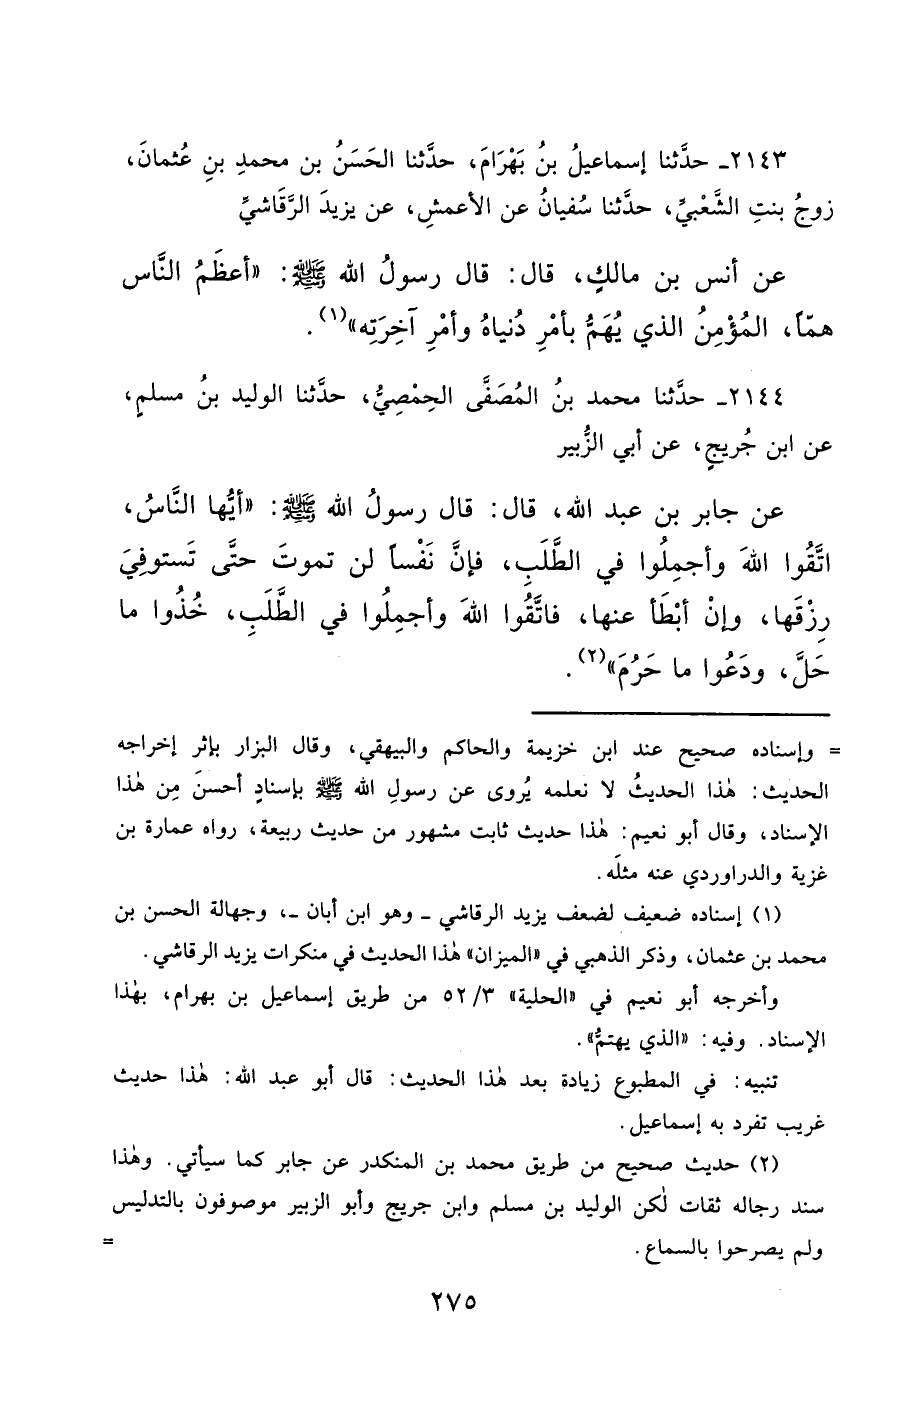 ٢١٤٣ـ حدَّثنا إسماعيلُ بنُ بَهْرَامَ، حدَّثنا الحَسَنُ بن محمدِ بنِ عُثمانَ،
زوجُ بنتِ الشَّعْبيِّ، حدَّثنا سُفيانُ عن الأعمشِ، عن يزيدَ الرَّقَاشيِّ
عن أنس بن مالكٍ، قال: قال رسولُ الله ﷺ: «أعظَمُ النَّاس
همّاً، المُؤْمِنُ الذي يُهَمُّ بأمْرِ دُنياهُ وأمْرِ آخِرَتِه»(١).
٢١٤٤ـ حدَّثنا محمد بنُ المُصَفَّى الحِمْصِيُّ، حدَّثنا الوليد بنُ مسلمٍ،
عن ابن جُريجٍ، عن أبي الزُّبير
عن جابر بن عبد الله، قال: قال رسولُ الله ﷺ: «أيُّها النَّاسُ،
اتَّقُوا اللهَ وأجمِلُوا في الطَّلَبِ، فإنَّ نَفْساً لن تموتَ حتَّى تَستوفِيَ
رِزْقَها، وإنْ أبْطَأ عنها، فاتَّقُوا اللهَ وأجمِلُوا في الطَّلَبِ، خُذُوا ما
حَلَّ، ودَعُوا ما حَرُمَ»(٢).
= وإسناده صحيح عند ابن خزيمة والحاكم والبيهقي، وقال البزار بإثر إخراجه
الحديث: هٰذا الحديثُ لا نعلمه يُروى عن رسولِ الله ﷺ بإسنادٍ أحسنَ مِن هٰذا
الإسناد، وقال أبو نعيم: هٰذا حديث ثابت مشهور من حديث ربيعة، رواه عمارة بن
غزية والدراوردي عنه مثلَه.
(١) إسناده ضعيف لضعف يزيد الرقاشي ـ وهو ابن أبان ـ، وجهالة الحسن بن
محمد بن عثمان، وذكر الذهبي في «الميزان» هٰذا الحديث في منكرات يزيد الرقاشي.
وأخرجه أبو نعيم في «الحلية» ٥٢/٣ من طريق إسماعيل بن بهرام، بهٰذا
الإسناد. وفيه: «الذي يهتمُّ».
تنبيه: في المطبوع زيادة بعد هٰذا الحديث: قال أبو عبد الله: هٰذا حديث
غريب تفرد به إسماعيل.
(٢) حديث صحيح من طريق محمد بن المنكدر عن جابر كما سيأتي. وهٰذا
سند رجاله ثقات لٰكن الوليد بن مسلم وابن جريج وأبو الزبير موصوفون بالتدليس
ولم يصرحوا بالسماع. =
٢٧٥